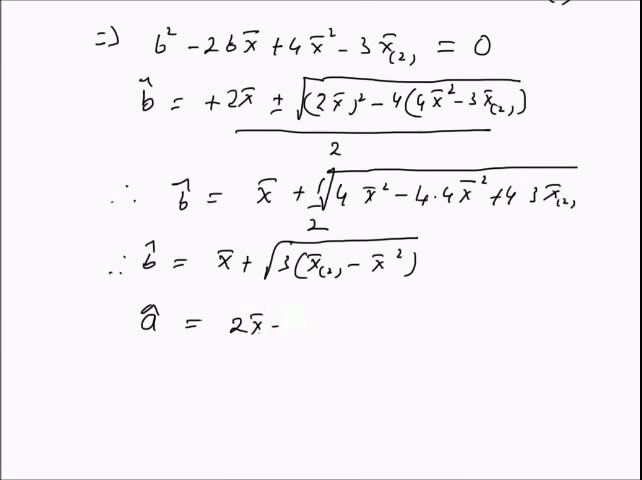 => b² - 2bx̄ + 4x̄² - 3x̄₍₂₎ = 0
b̂ = +2x̄ ± √((2x̄)² - 4(4x̄² - 3x̄₍₂₎)) / 2
∴ b̂ = x̄ + 1/2 √(4x̄² - 4·4x̄² + 4 3x̄₍₂₎)
∴ b̂ = x̄ + √(3(x̄₍₂₎ - x̄²))
â = 2x̄ -